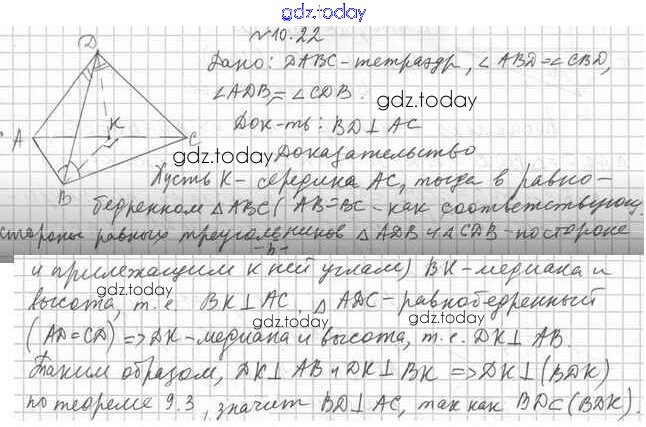 gdz.today
№10.22
Дано: DABC-тетраэдр, ∠ABD=∠CBD,
∠ADB=∠CDB.
gdz.today
Док-ть: BD⊥AC
gdz.today
Доказательство
D
A
K
C
B
Пусть K-середина AC, тогда в равно-
бедренном △ABC (AB=BC-как соответствующ.
стороны равных треугольников △ADB и △CDB-по стороне
и прилежащим к ней углам) BK-медиана и
высота, т.е. BK⊥AC. △ADC-равнобедренный
gdz.today
gdz.today
(AD=CD) => DK-медиана и высота, т.е. DK⊥AB.
Таким образом, DK⊥AB и DK⊥BK => DK⊥(BDK)
gdz.today
gdz.today
по теореме 9.3, значит BD⊥AC, так как BD⊂(BDK).